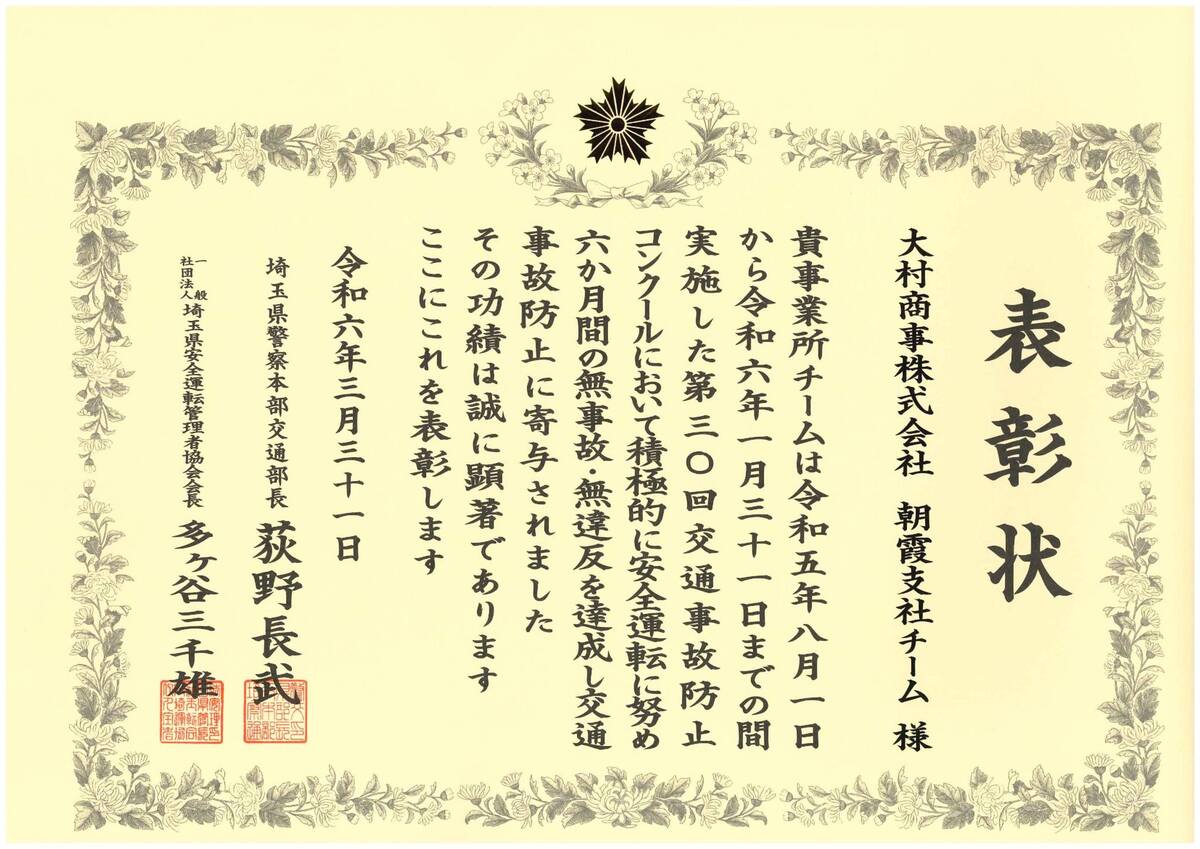 表彰状
大村商事株式会社 朝霞支社チーム 様
貴事業所チームは令和五年八月一日
から令和六年一月三十一日までの間
実施した第三〇回交通事故防止
コンクールにおいて積極的に安全運転に努め
六か月間の無事故・無違反を達成し交通
事故防止に寄与されました
その功績は誠に顕著であります
ここにこれを表彰します
令和六年三月三十一日
埼玉県警察本部交通部長 荻野長武
一般社団法人 埼玉県安全運転管理者協会会長 多ヶ谷三千雄